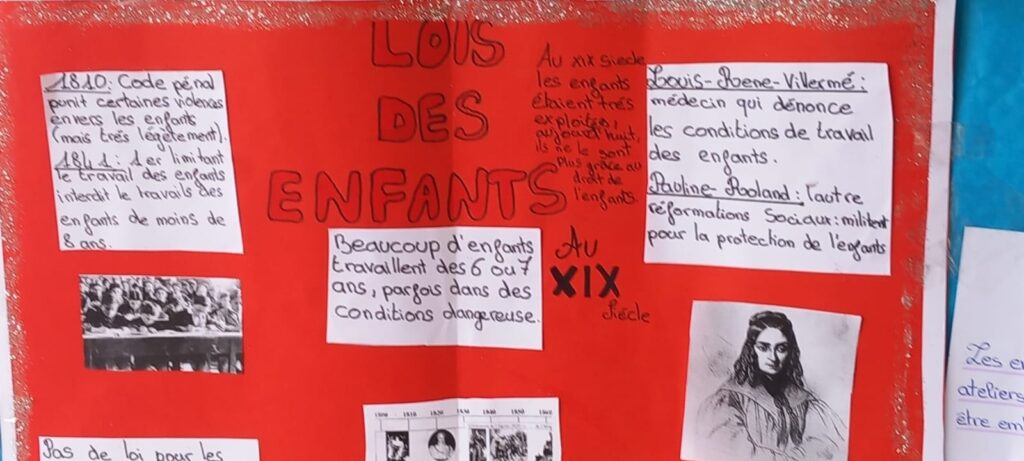 LOIS
DES
ENFANTS
1810: Code pénal
punit certaines violences
envers les enfants
(mais trés légétement).
1841: 1er limitant
le travail des enfants
interdit le travails des
enfants de moins de
8 ans.
Au XIX siecle
les enfants
étaient trés
exploités,
aujourd'huit,
ils ne le sont
plus grâce au
droit de
l'enfants.
Louis-Rene-Villermé:
médecin qui dénonce
les conditions de travail
des enfants.
Pauline-Rooland: l'autre
réformations Sociaux: militent
pour la protection de l'enfants
Beaucoup d'enfants
travaillent des 6 ou 7
ans, parfois dans des
conditions dangereuse.
Au
XIX
Siécle
Pas de loi pour les
1800 1810 1820 1830 1840 1850 1860
Les en
ateliers
être em